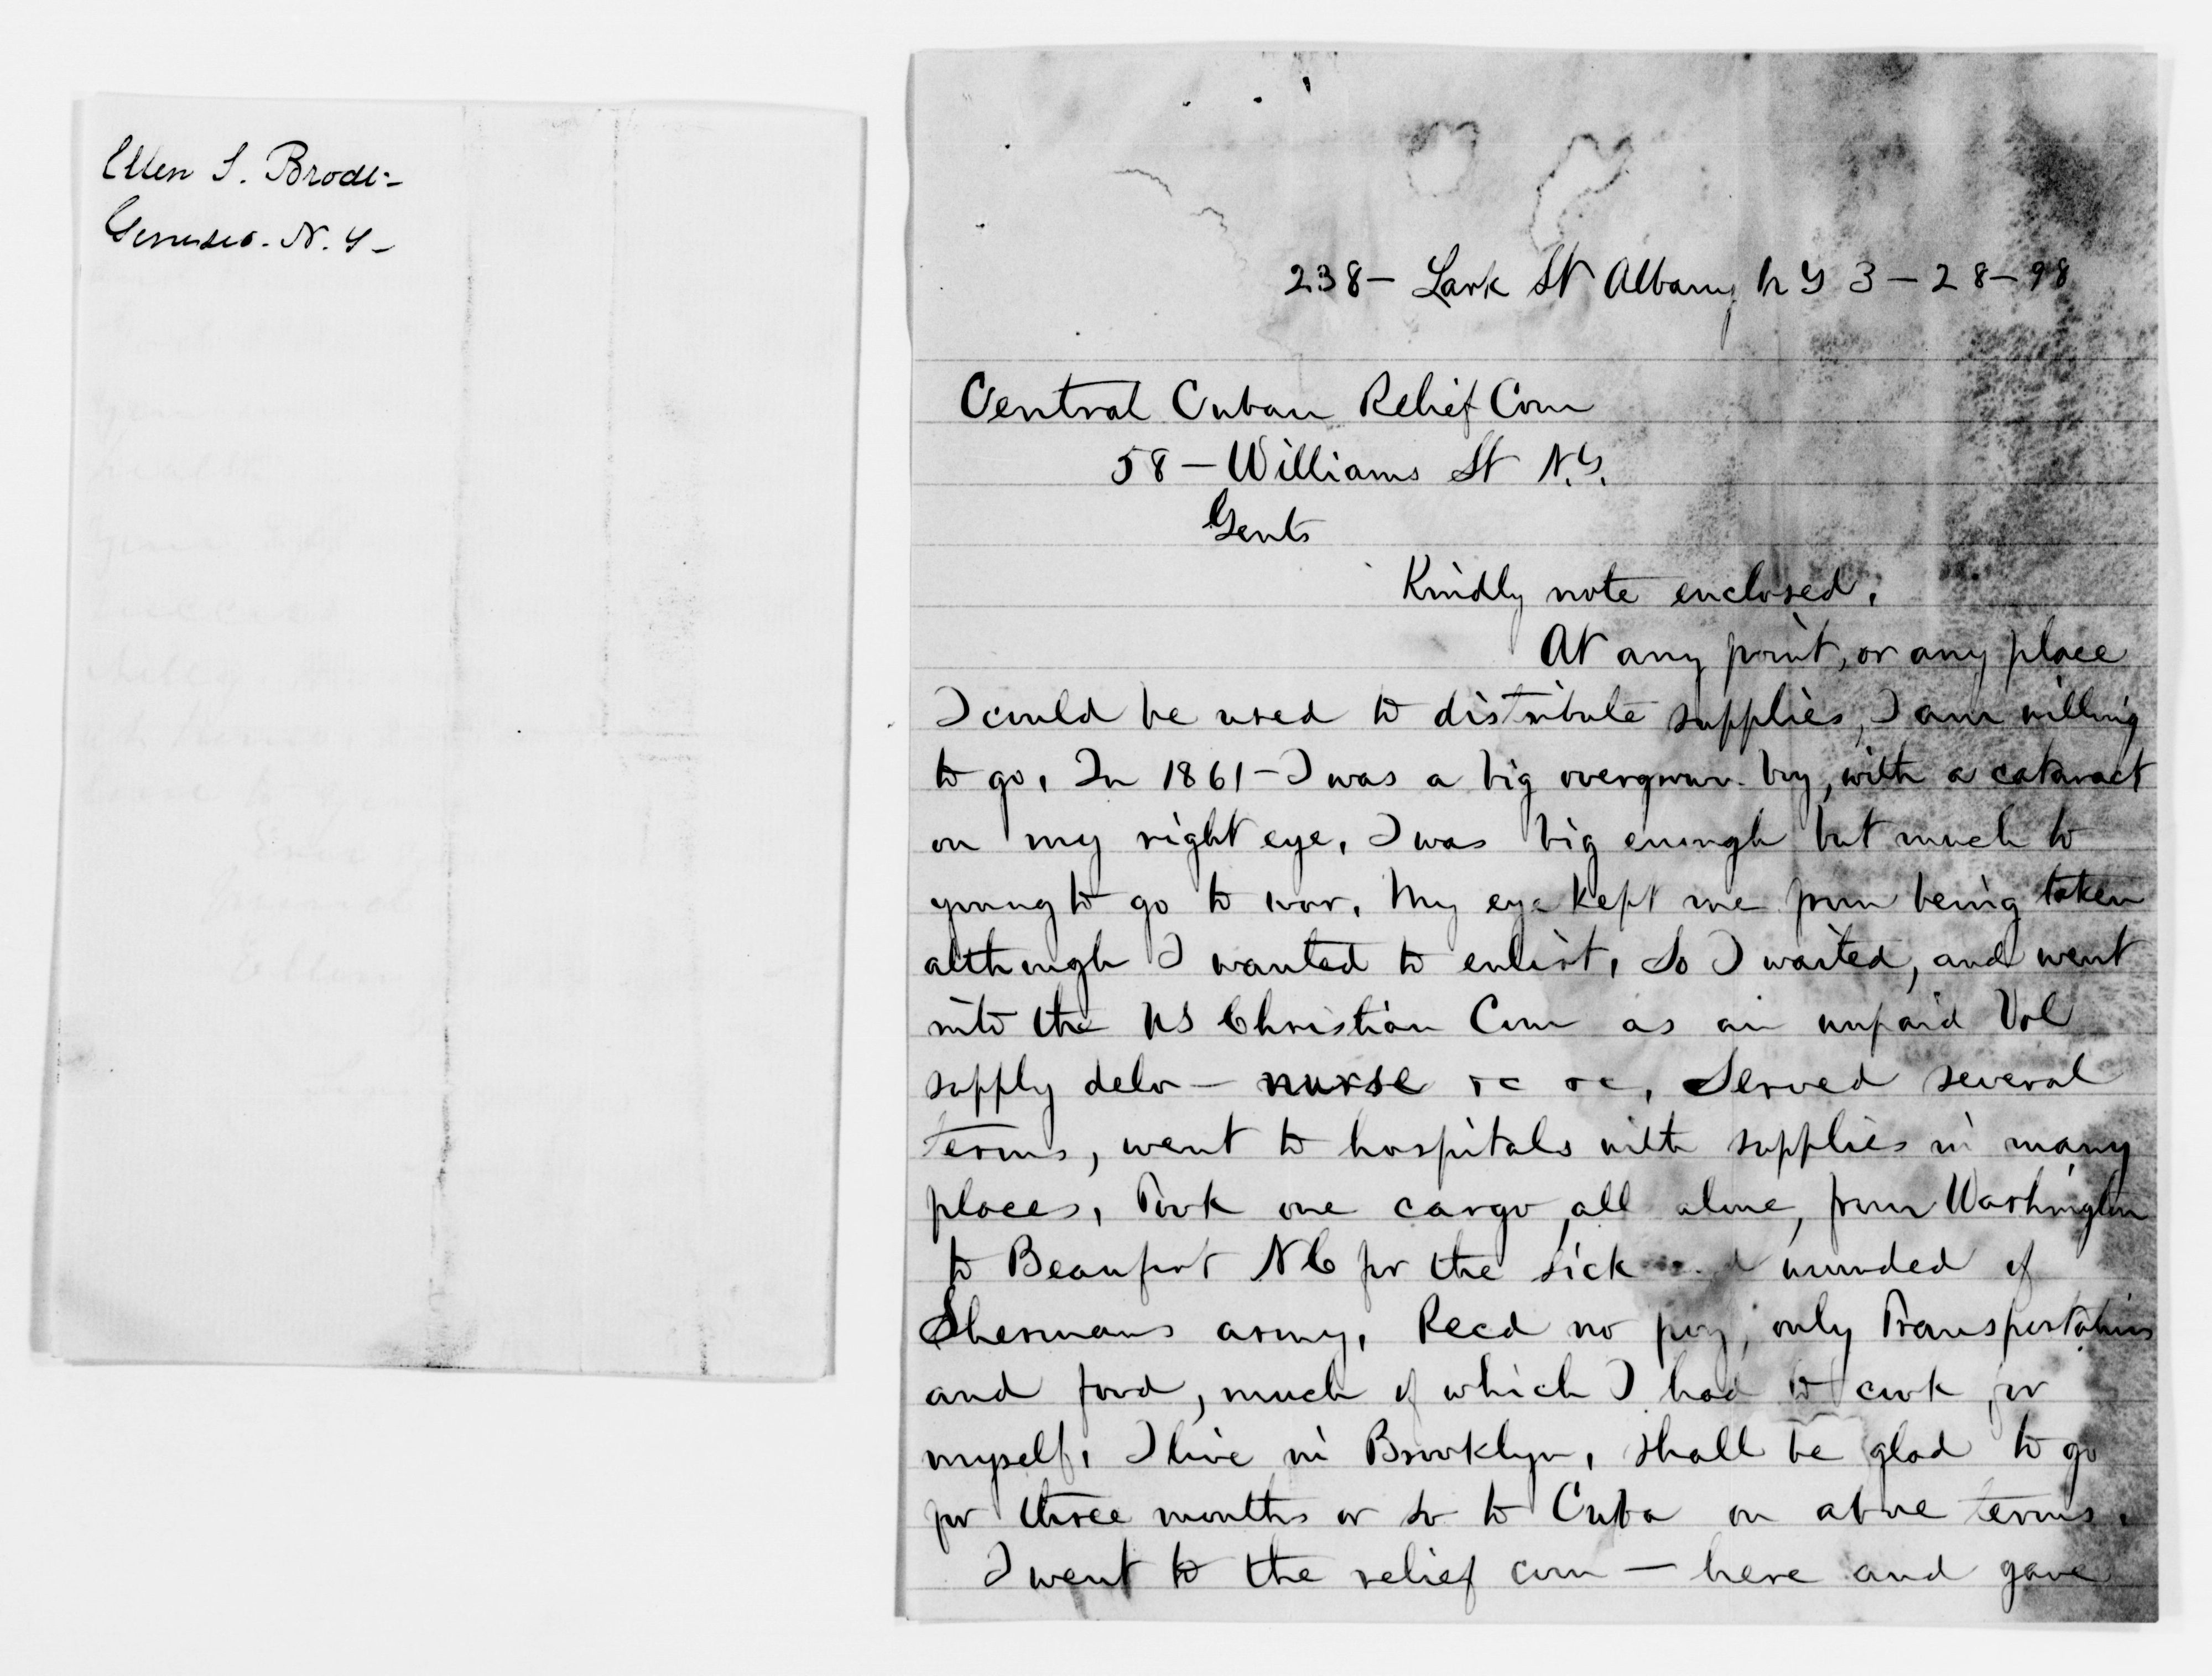 Ellen S. Brodt-
Geneseo. N. Y-
238- Lark St Albany N Y 3-28-98
Central Cuban Relief Com
58- Williams St N.Y.
Gents
Kindly note enclosed.
At any point, or any place
I could be used to distribute supplies, I am willing
to go. In 1861- I was a big overgrown boy, with a cataract
on my right eye. I was big enough but much to
young to go to war. My eye kept me from being taken
although I wanted to enlist. So I waited, and went
into the US Christian Com as an unpaid Vol
supply delr - nurse &c &c. Served several
terms, went to hospitals with supplies in many
places. Took one cargo, all alone, from Washington
to Beaufort NC for the sick and wounded of
Shermans army. Recd no pay, only Transportation
and food, much of which I had to cook for
myself. I live in Brooklyn. Shall be glad to go
for three months or so to Cuba on above terms.
I went to the relief com - here and gave